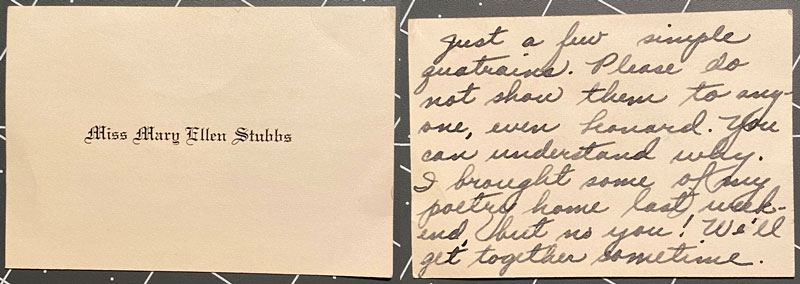 Miss Mary Ellen Stubbs
Just a few simple
quatrains. Please do
not show them to any-
one, even Leonard. You
can understand why.
I brought some of my
poetry home last week-
end, but no you! We'll
get together sometime.